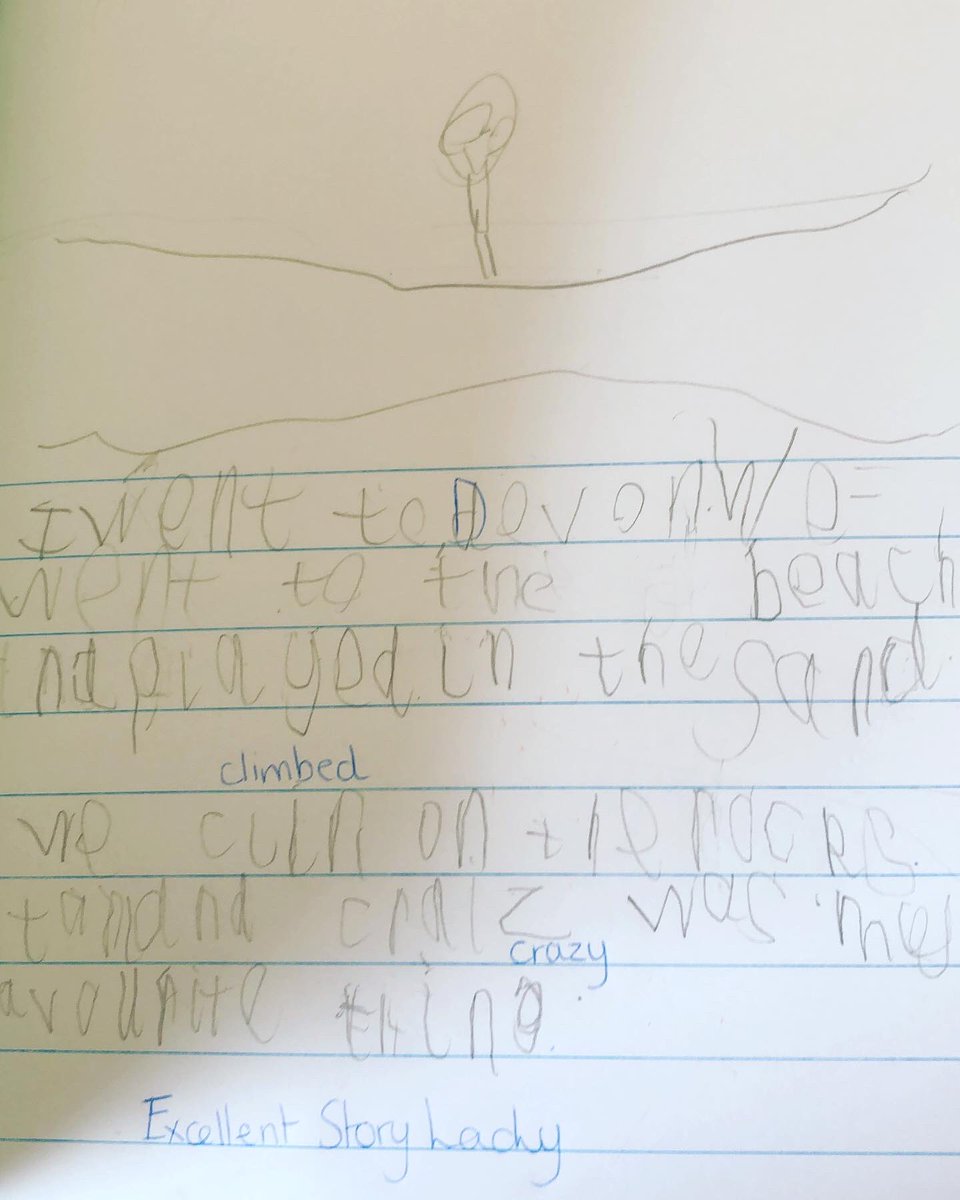 I went to Devon. We
went to the beach
nd played in the sand.
climbed
we clin on the rocks.
crazy
avourite thing.
Excellent Story Lachy